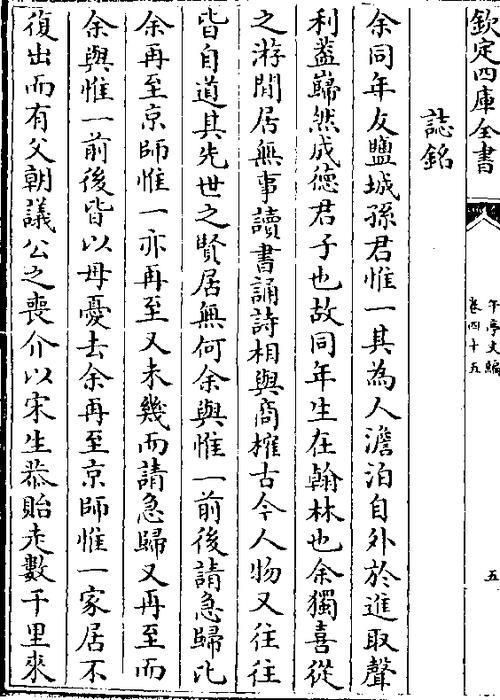 欽定四庫全書
午亭文編
卷四十五
五
誌銘
余同年友鹽城孫君惟一其為人澹泊自外於進取聲
利葢巋然成德君子也故同年生在翰林也余獨喜從
之游閒居無事讀書誦詩相與商榷古今人物又往往
皆自道其先世之賢居無何余與惟一前後請急歸比
余再至京師惟一亦再至又未幾而請急歸又再至而
余與惟一前後皆以母憂去余再至京師惟一家居不
復出而有父朝議公之喪介以宋生恭貽走數千里來